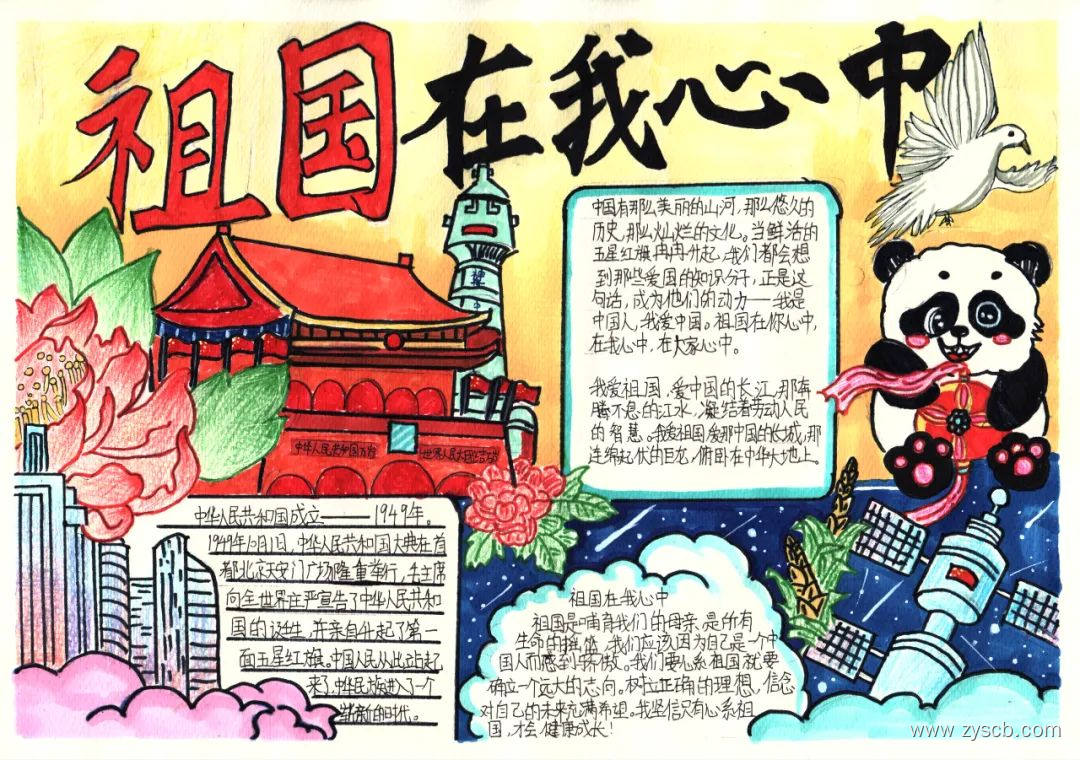 祖国在我心中
中国有那么美丽的山河，那么悠久的
历史，那么灿烂的文化。当鲜活的
五星红旗冉冉升起，我们都会想
到那些爱国的知识分子，正是这
句话，成为他们的动力——我是
中国人，我爱中国。祖国在你心中，
在我心中，在大家心中。
我爱祖国，爱中国的长江，那奔
腾不息的江水，凝结着劳动人民
的智慧。我爱祖国爱那中国的长城，那
连绵起伏的巨龙，俯卧在中华大地上。
中华人民共和国万岁
世界人民大团结万岁
中华人民共和国成立——1949年。
1949年10月1日，中华人民共和国大典在首
都北京天安门广场隆重举行，毛主席
向全世界庄严宣告了中华人民共和
国的诞生，并亲自升起了第一
面五星红旗。中国人民从此站起
来了，中华民族进入了一个
崭新的时代。
祖国在我心中
祖国是哺育我们的母亲，是所有
生命的摇篮，我们应该因为自己是一个中
国人而感到骄傲。我们要心系祖国就要
确立一个远大的志向。树立正确的理想，信念
对自己的未来充满希望。我坚信只有心系祖
国，才会健康成长！
www.zyscb.com